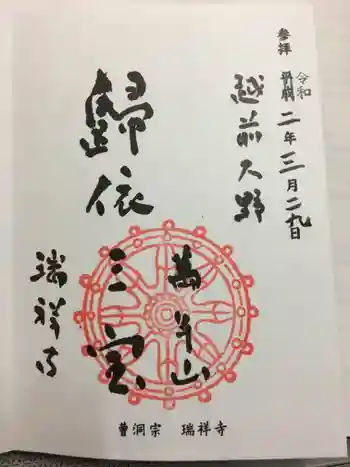 参拝
令和
平成二年三月二九日
越前大野
萬年山
歸依三宝
瑞祥寺
曹洞宗 瑞祥寺